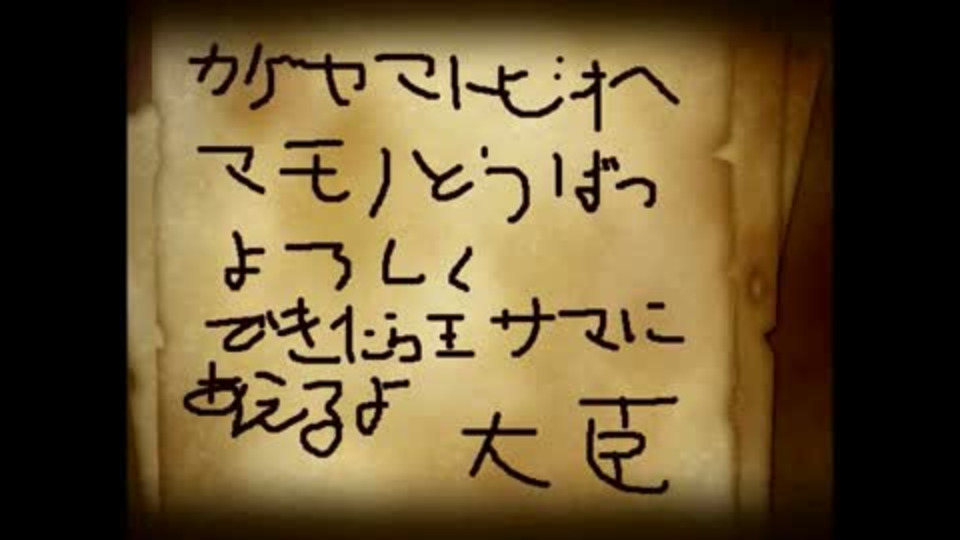 カゲヤマトビオへ
マモノどうばつ
よろしく
できたら王サマに
あえるよ
大臣